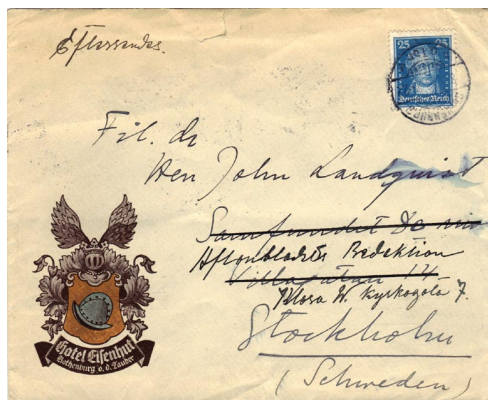 Eftersändes.
25 25
Deutsches Reich
Fil. dr
Herr John Landquist
Samfundet De nio
Aftonbladets Redaktion
Villagatan 14
Klara W. Kyrkogata 7.
Stockholm
(Schweden)
Hotel Eisenhut
Rothenburg o. d. Tauber